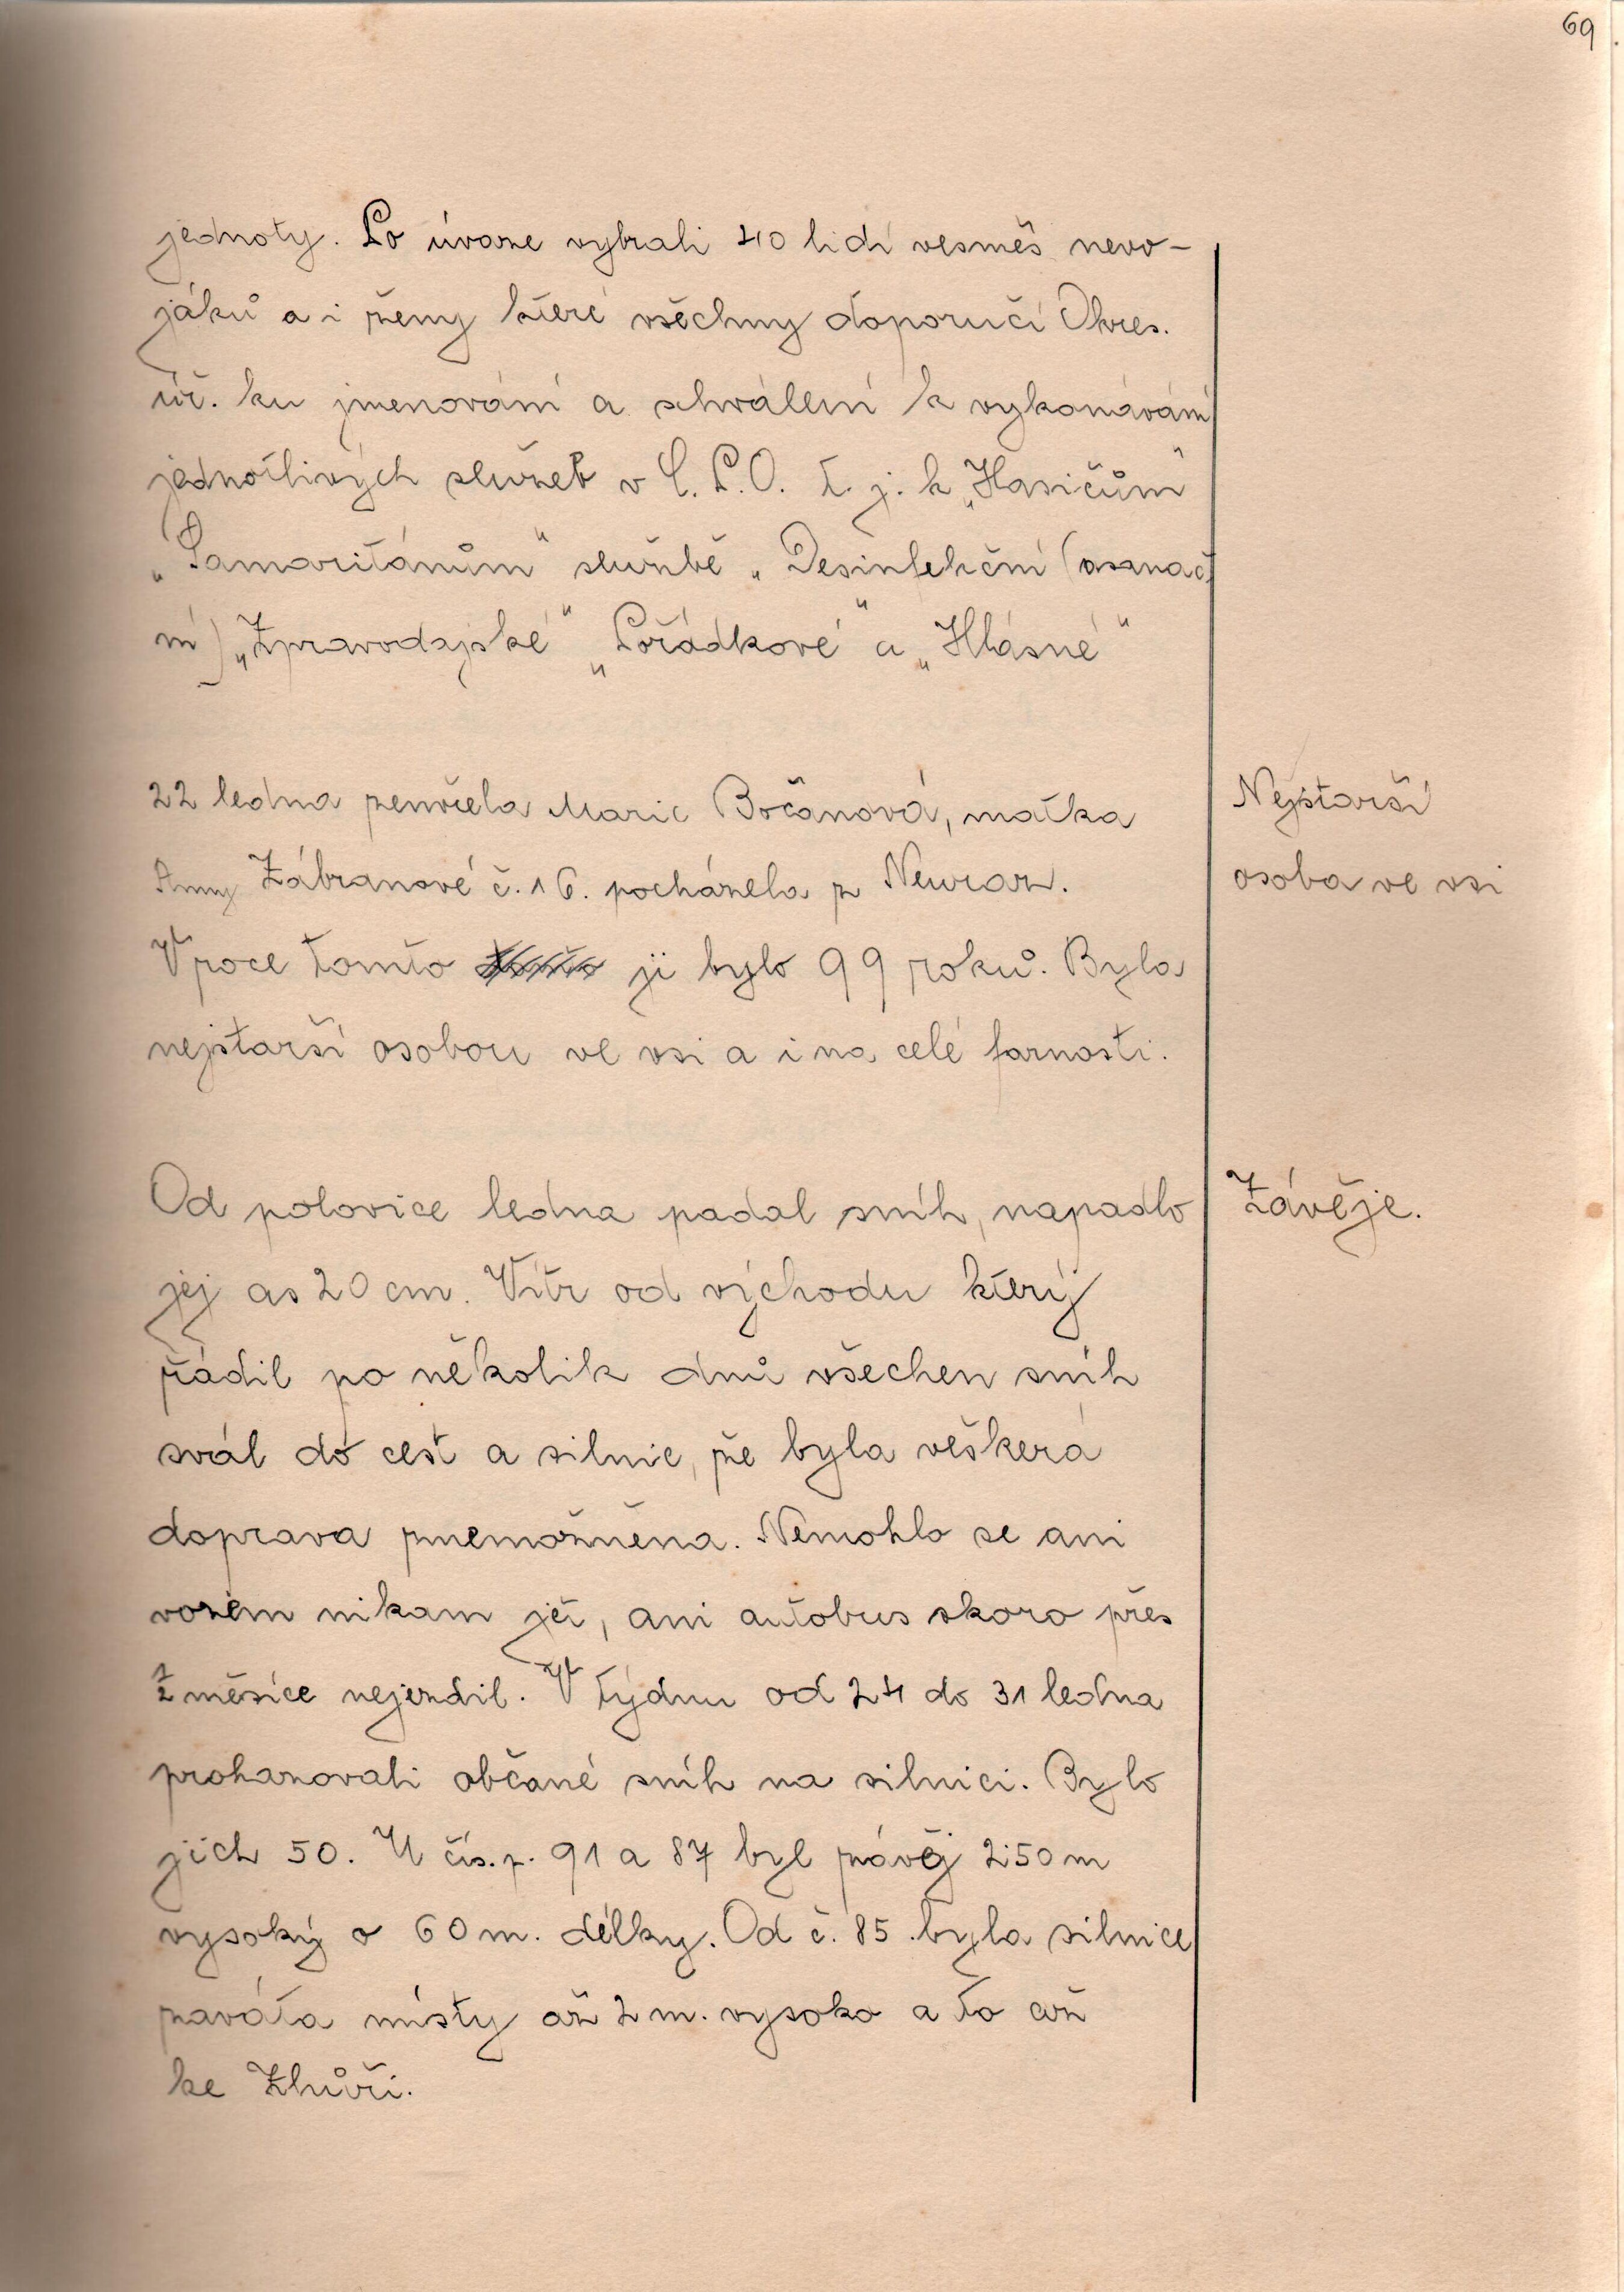 69
jednoty. Po úvaze vybrali 40 lidí vesměs nevo-
jáků a i ženy které všechny doporučí Okres.
úř. ku jmenování a schválení k vykonávání
jednotlivých služeb v C. P. O. t. j. k „Hasičům"
„Samaritánům" službě „Desinfekční (asanač
ní) „Zpravodajské" „Pořádkové" a „Hlásné"
22 ledna zemřela Marie Bočanová, matka
Nejstarší
Anny Zábranové č. 16. pocházela z
osoba ve vsi
V roce tomto ji bylo 99 roků. Byla
nejstarší osobou ve vsi a i na celé farnosti.
Od polovice ledna padal sníh, napadlo
Závěje.
jej as 20 cm. Vítr od východu který
řádil po několik dnů všechen sníh
svál do cest a silnic, že byla veškerá
doprava znemožněna. Nemohlo se ani
vozem nikam jet, ani autobus skoro přes
½ měsíce nejezdil. V týdnu od 24 do 31 ledna
prohazovali občané sníh na silnici. Bylo
jich 50. U čís. p. 91 a 87 byl závěj 2.50 m
vysoký o 60 m. délky. Od č. 85 byla silnice
zaváta místy až 2 m. vysoko a to až
ke Zhůři.